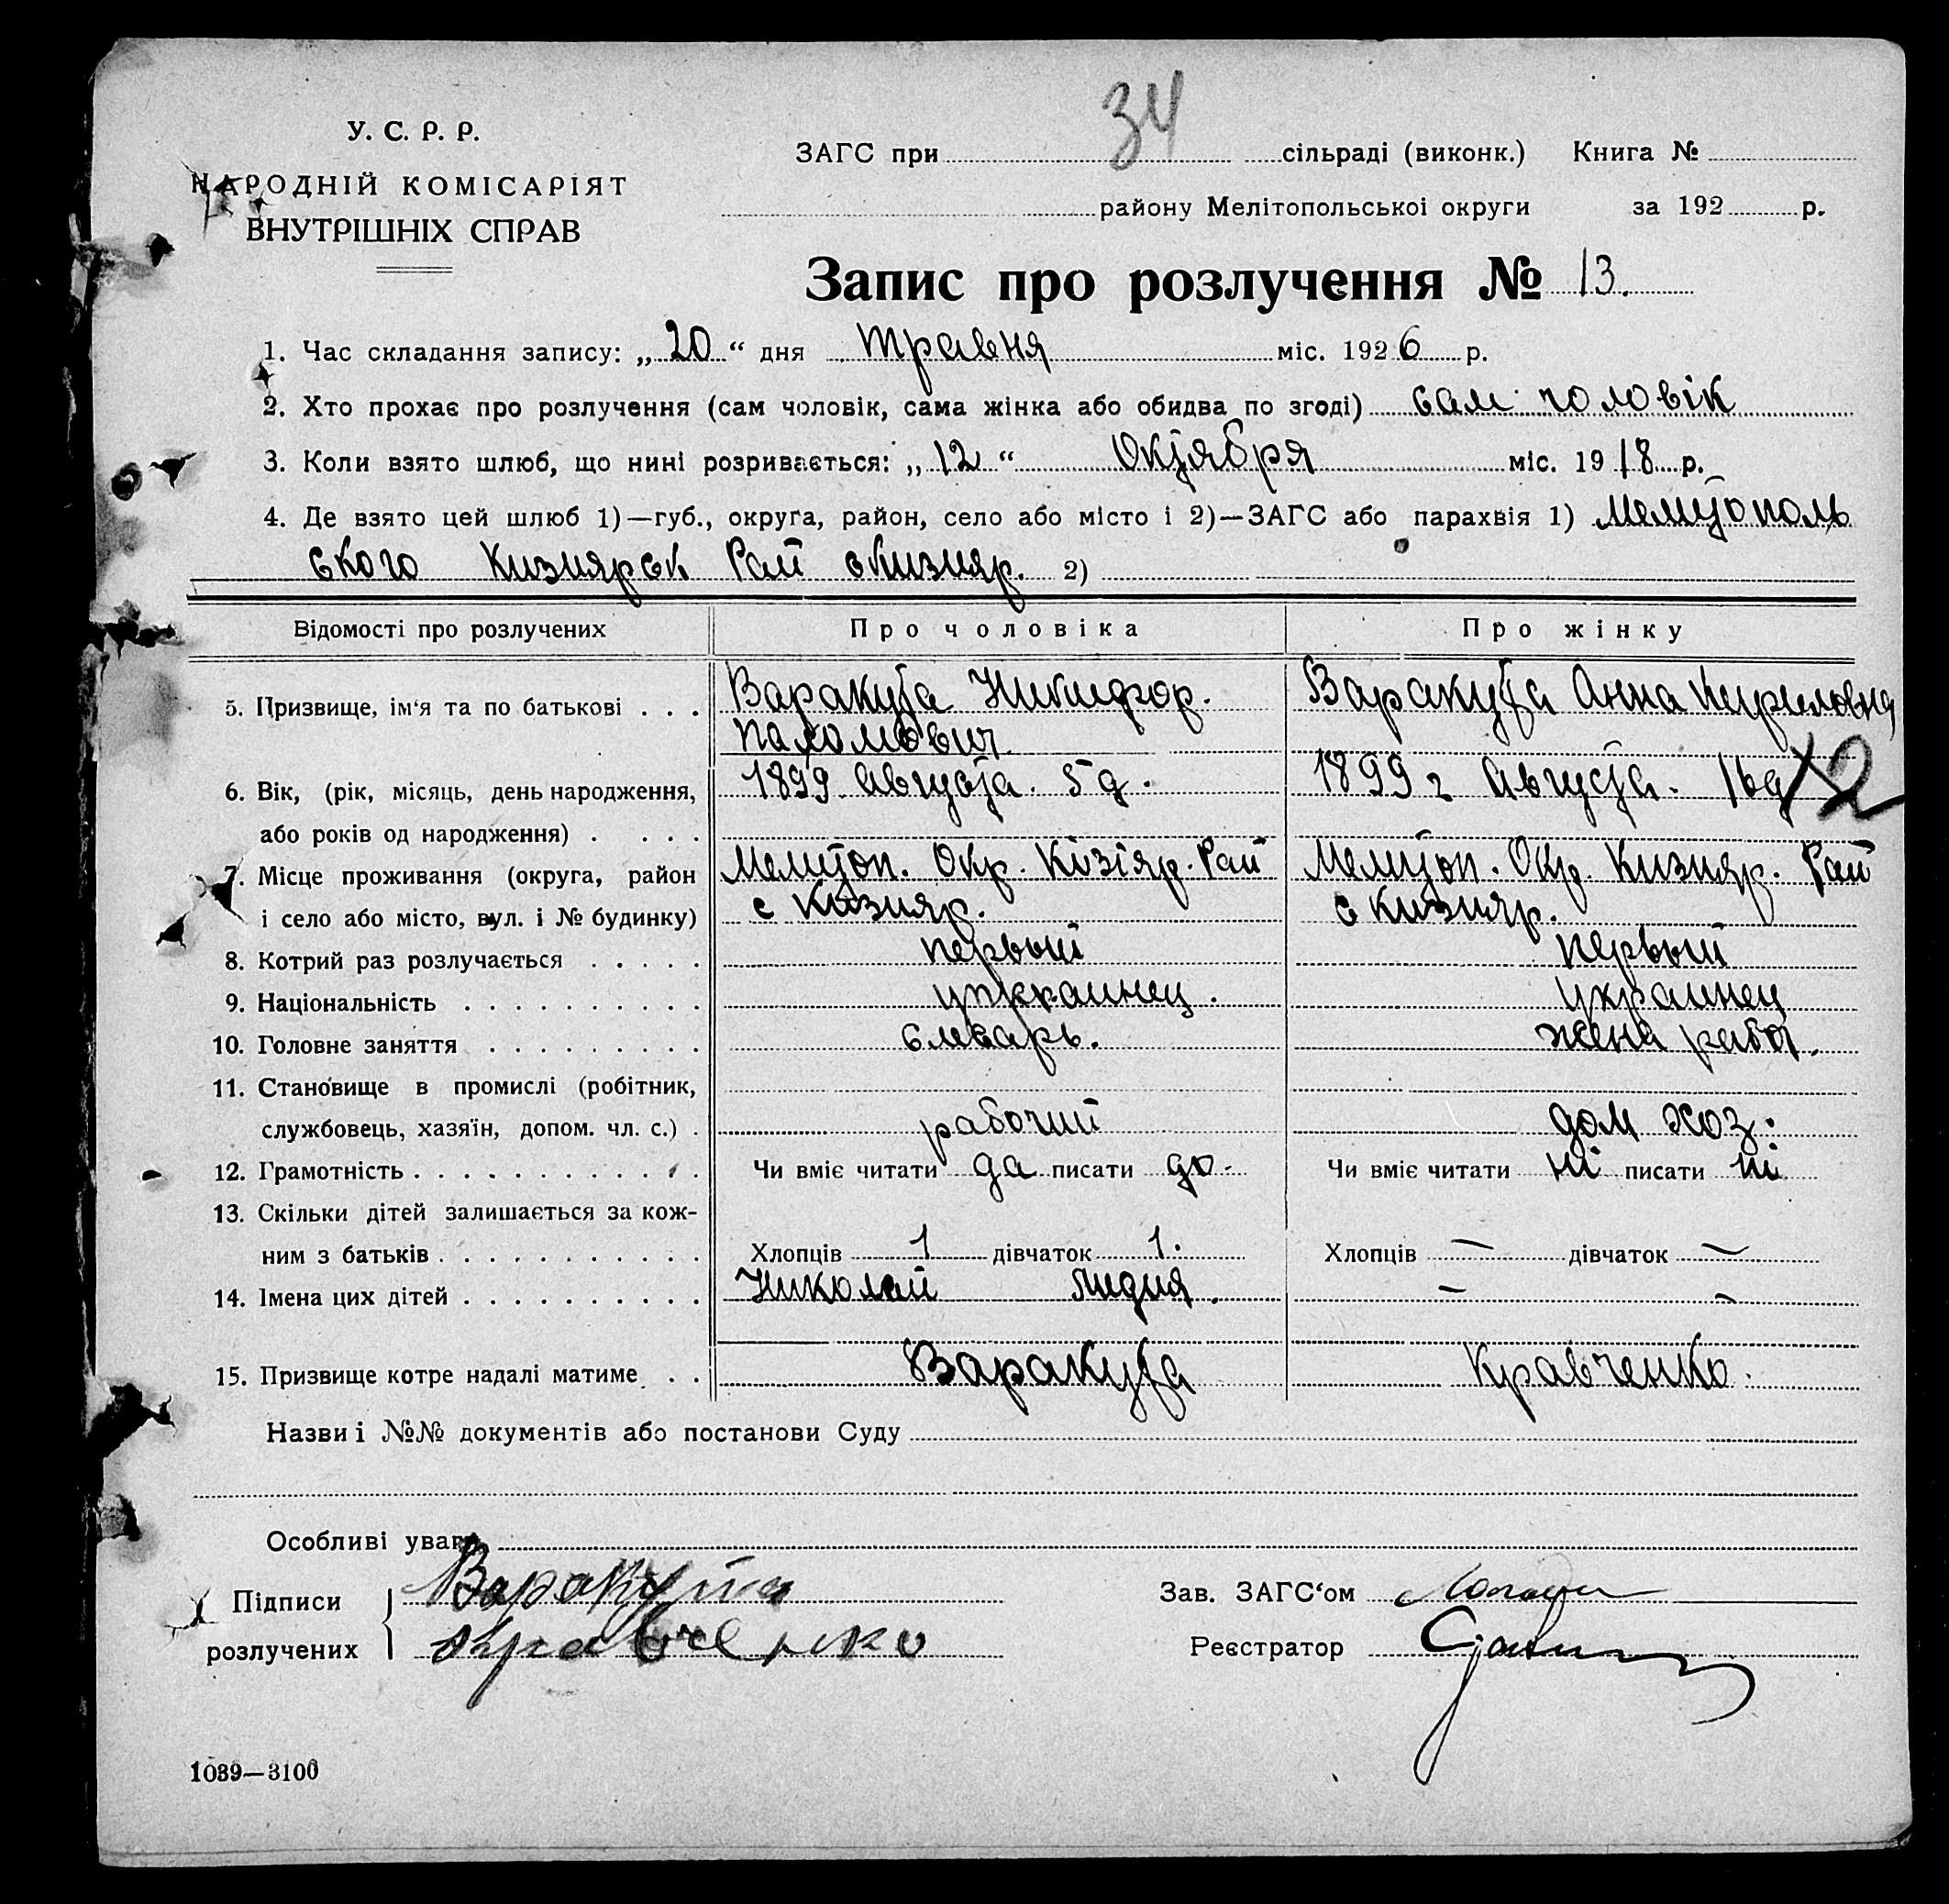 34
У. С. Р. Р.
НАРОДНІЙ КОМІСАРІЯТ
ВНУТРІШНІХ СПРАВ
ЗАГС при сільраді (виконк.) Книга №
району Мелітопольської округи за 192 р.
Запис про розлучення № 13.
1. Час складання запису: „20“ дня травня міс. 1926 р.
2. Хто прохає про розлучення (сам чоловік, сама жінка або обидва по згоді) сам чоловік
3. Коли взято шлюб, що нині розривається: „12“ Октября міс. 1918 р.
4. Де взято цей шлюб 1)—губ., округа, район, село або місто і 2)—ЗАГС або парахвія 1) Мелитополь
ского Кизиярск Рай с Кизияр. 2)
Відомості про розлучених Про чоловіка Про жінку
5. Призвище, ім‘я та по батькові . . . Варакута Никифор. Варакута Анна Кириловна
6. Вік, (рік, місяць, день народження, 1899. Августа. 5 д. 1899 г Августа. 16 д
X2
або років од народження) . . . .
7. Місце проживання (округа, район Мелитоп. Окр. Кізіяр. Рай Мелитоп. Окр. Кизияр. Рай
і село або місто, вул. і № будинку) с Кизияр. с Кизияр.
8. Котрий раз розлучається . . . . . первый первый
9. Національність . . . . . . . . . . украинец. украинец
10. Головне заняття . . . . . . . . . слесарь. жена работ.
11. Становище в промислі (робітник,
службовець, хазяїн, допом. чл. с.) . рабочий дом хоз.
12. Грамотність . . . . . . . . . . . . Чи вміє читати да писати да. Чи вміє читати ні писати ні
13. Скільки дітей залишається за кож-
ним з батьків . . . . . . . . . . . Хлопців 1 дівчаток 1. Хлопців — дівчаток —
14. Імена цих дітей . . . . . . . . . . Николай Лидия. — —
15. Призвище котре надалі матиме . . Варакута Кравченко.
Назви і №№ документів або постанови Суду
Особливі уваги
Підписи Варакута Зав. ЗАГС‘ом
розлучених Кравченко Реєстратор
1039—3100